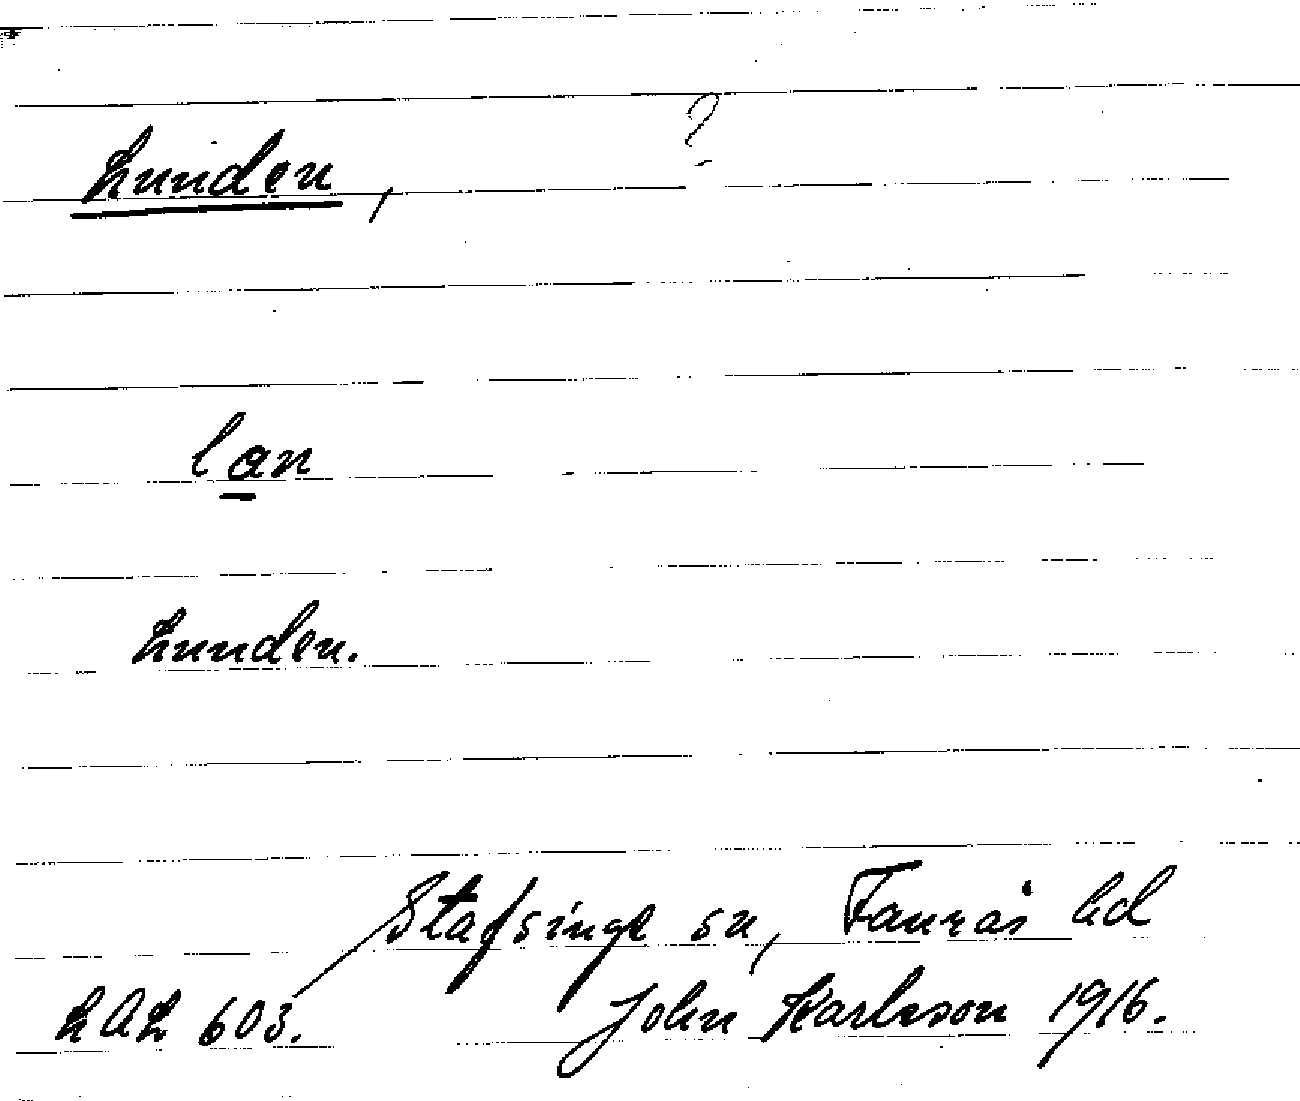 Lunden, ?
lan
Lunden.
Stafsinge sn, Faurås hd
LAL 603. John Karlsson 1916.